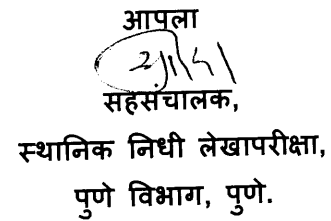 आपला
सहसंचालक,
स्थानिक निधी लेखापरीक्षा,
पुणे विभाग, पुणे.